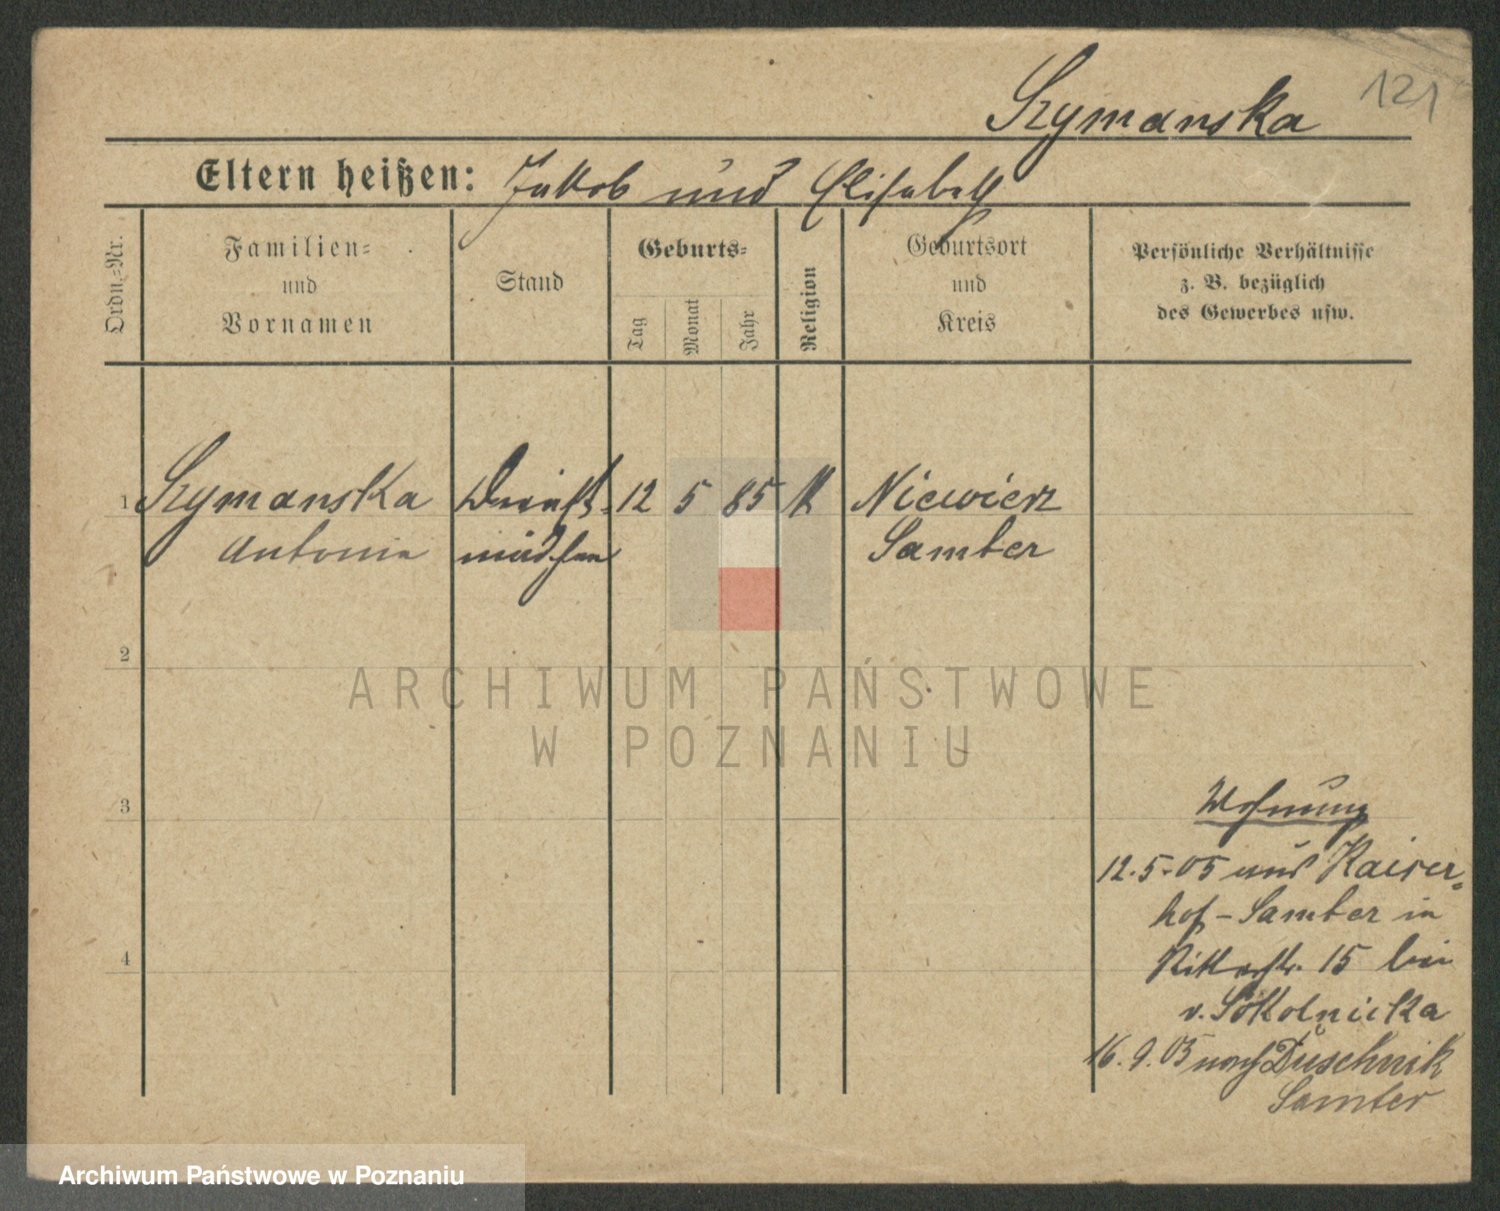 121
Szymanska
Eltern heißen: Jakob und Elisabeth
Ordn.=Nr.
Familien=
und
Vornamen
Stand
Geburts=
Tag
Monat
Jahr
Religion
Geburtsort
und
Kreis
Persönliche Verhältnisse
z. B. bezüglich
des Gewerbes usw.
1 Szymanska Dienst= 12 5 85 k Niewierz
Antonie mädchen Samter
2
3
4
Wohnung
12.5.05 aus Kaiser=
hof - Samter in
Ritterstr. 15 bei
v. Sokolnicka
16.9.05 nach Duschnik
Samter
ARCHIWUM PAŃSTWOWE
W POZNANIU
Archiwum Państwowe w Poznaniu